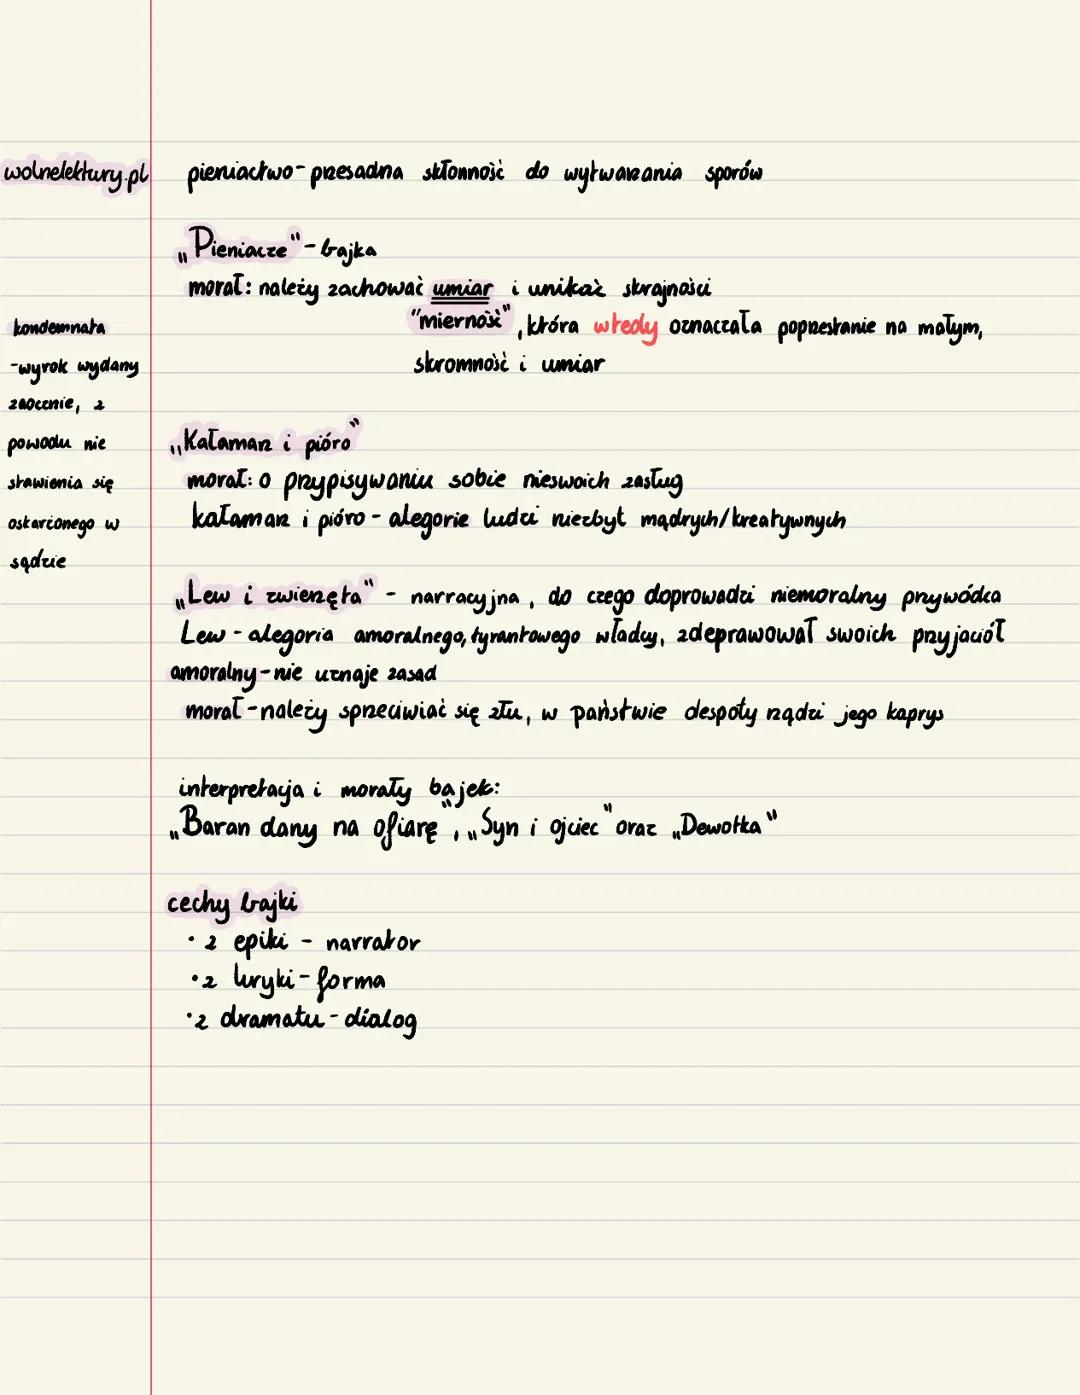 wolnelektury.pl
pieniactwo - przesadna skłonność do wytwarzania sporów
„Pieniacze" - bajka
morał: należy zachować umiar i unikać skrajności
"mierność", która wtedy oznaczała poprzestanie na małym,
skromność i umiar
kondemnata
-wyrok wydany
zaocznie, z
powodu nie
stawienia się
oskarżonego w
sądzie
„Kałamarz i pióro"
morał: o przypisywaniu sobie nieswoich zasług
kałamarz i pióro - alegorie ludzi niezbyt mądrych/kreatywnych
„Lew i zwierzęta" - narracyjna, do czego doprowadzi niemoralny przywódca
Lew - alegoria amoralnego, tyrantowego władcy, zdeprawował swoich przyjaciół
amoralny - nie uznaje zasad
morał - należy sprzeciwiać się złu, w państwie despoty rządzi jego kaprys
interpretacja i morały bajek:
„Baran dany na ofiarę", „Syn i ojciec" oraz „Dewotka"
cechy bajki
· z epiki - narrator
· z liryki - forma
· z dramatu - dialog